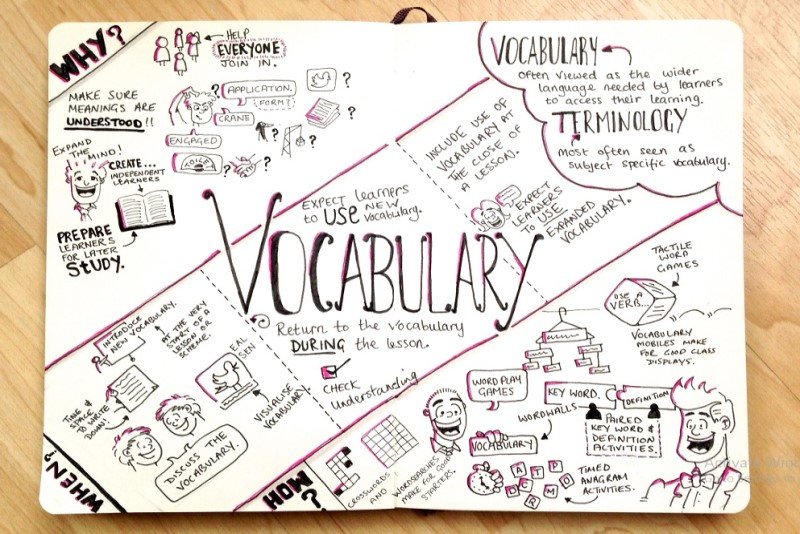 WHY?
HELP
EVERYONE
JOIN IN.
MAKE SURE
MEANINGS ARE
UNDERSTOOD!!
APPLICATION.
FORM?
CRANE
ENGAGED
?
?
?
?
?
?
?
EXPAND
THE MIND!
CREATE...
INDEPENDENT
LEARNERS
PREPARE
LEARNERS
FOR LATER
STUDY.
VOCABULARY
often viewed as the wider
language needed by learners
to access their learning.
TERMINOLOGY
most often seen as
subject specific vocabulary.
INCLUDE USE OF
VOCABULARY AT
THE CLOSE OF
A LESSON.
EXPECT
LEARNERS
TO USE
EXPANDED
VOCABULARY.
EXPECT learners
to USE new vocabulary.
VOCABULARY
Return to the vocabulary
DURING the lesson.
CHECK
Understanding
INTRODUCE
NEW VOCABULARY.
AT THE VERY
START OF A
LESSON OR
SCHEME.
TIME &
SPACE
TO WRITE
DOWN!
EAL
SEN
VISUALISE
VOCABULARY
DISCUSS THE
VOCABULARY.
WHEN?
HOW?
CROSSWORDS
AND
WORDSEARCHES
MAKE FOR GOOD
STARTERS.
WORD PLAY
GAMES
WORDWALLS
VOCABULARY
TACTILE
WORD
GAMES
USE A
VERB...
VOCABULARY
MOBILES MAKE
FOR GOOD CLASS
DISPLAYS.
KEY WORD.
DEFINITION
PAIRED
KEY WORD &
DEFINITION
ACTIVITIES.
D A T P
C R M O
TIMED
ANAGRAM
ACTIVITIES.
Activate Wind